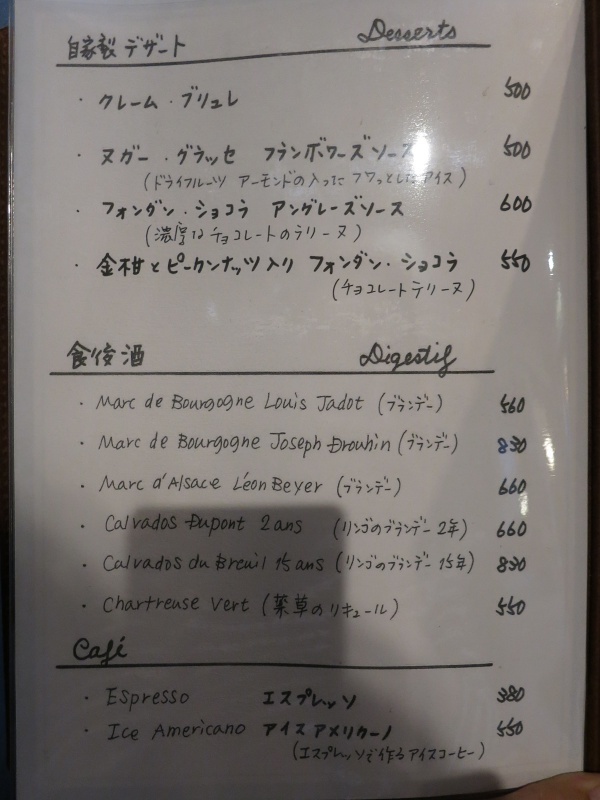 自家製 デザート Desserts
・クレーム・ブリュレ 500
・ヌガー・グラッセ フランボワーズソース 500
(ドライフルーツ アーモンドの入ったフワッとしたアイス)
・フォンダン・ショコラ アングレーズソース 600
(濃厚なチョコレートのテリーヌ)
・金柑とピーカンナッツ入り フォンダン・ショコラ 550
(チョコレートテリーヌ)
食後酒 Digestif
・Marc de Bourgogne Louis Jadot (ブランデー) 560
・Marc de Bourgogne Joseph Drouhin (ブランデー) 830
・Marc d'Alsace Léon Beyer (ブランデー) 660
・Calvados Dupont 2 ans (リンゴのブランデー 2年) 660
・Calvados du Breuil 15 ans (リンゴのブランデー 15年) 830
・Chartreuse Vert (薬草のリキュール) 550
Café
・Espresso エスプレッソ 380
・Ice Americano アイスアメリカーノ 550
(エスプレッソで作るアイスコーヒー)